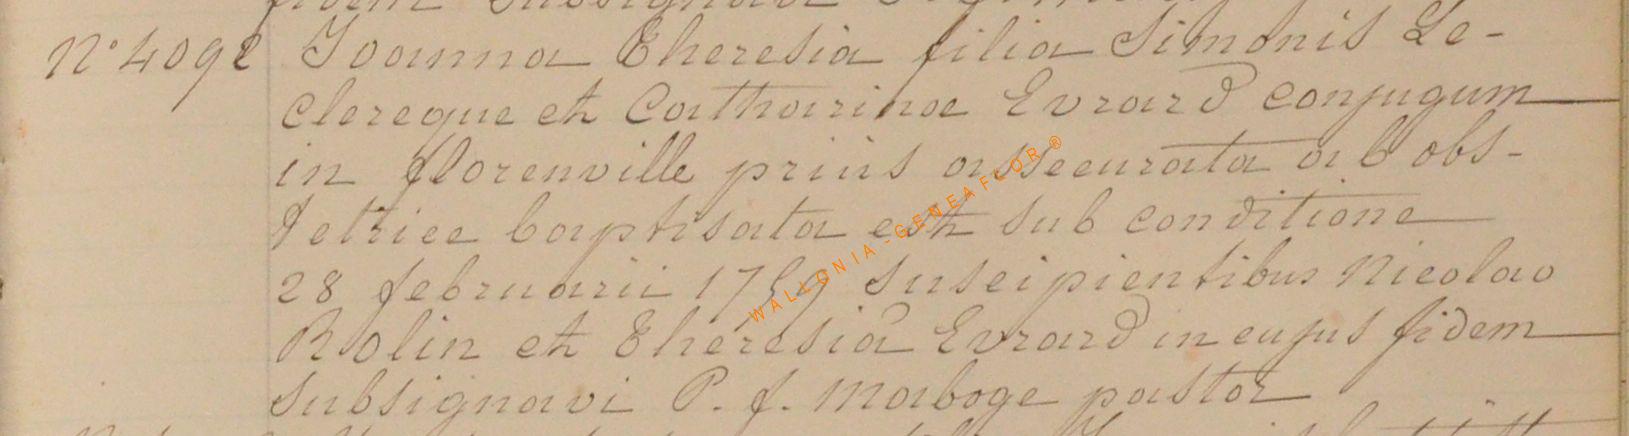 N° 4092 Joanna Theresia filia Simonis Le-
clercque et Catharinae Evrard conjugum
in florenville prius assecurata ab obs-
tetrice baptisata est sub conditione
28 februarii 1759 suscipientibus Nicolao
Rolin et Theresia Evrard in cujus fidem
subsignavi P. f. Maboge pastor
WALLONIA-GENEAFLOR®